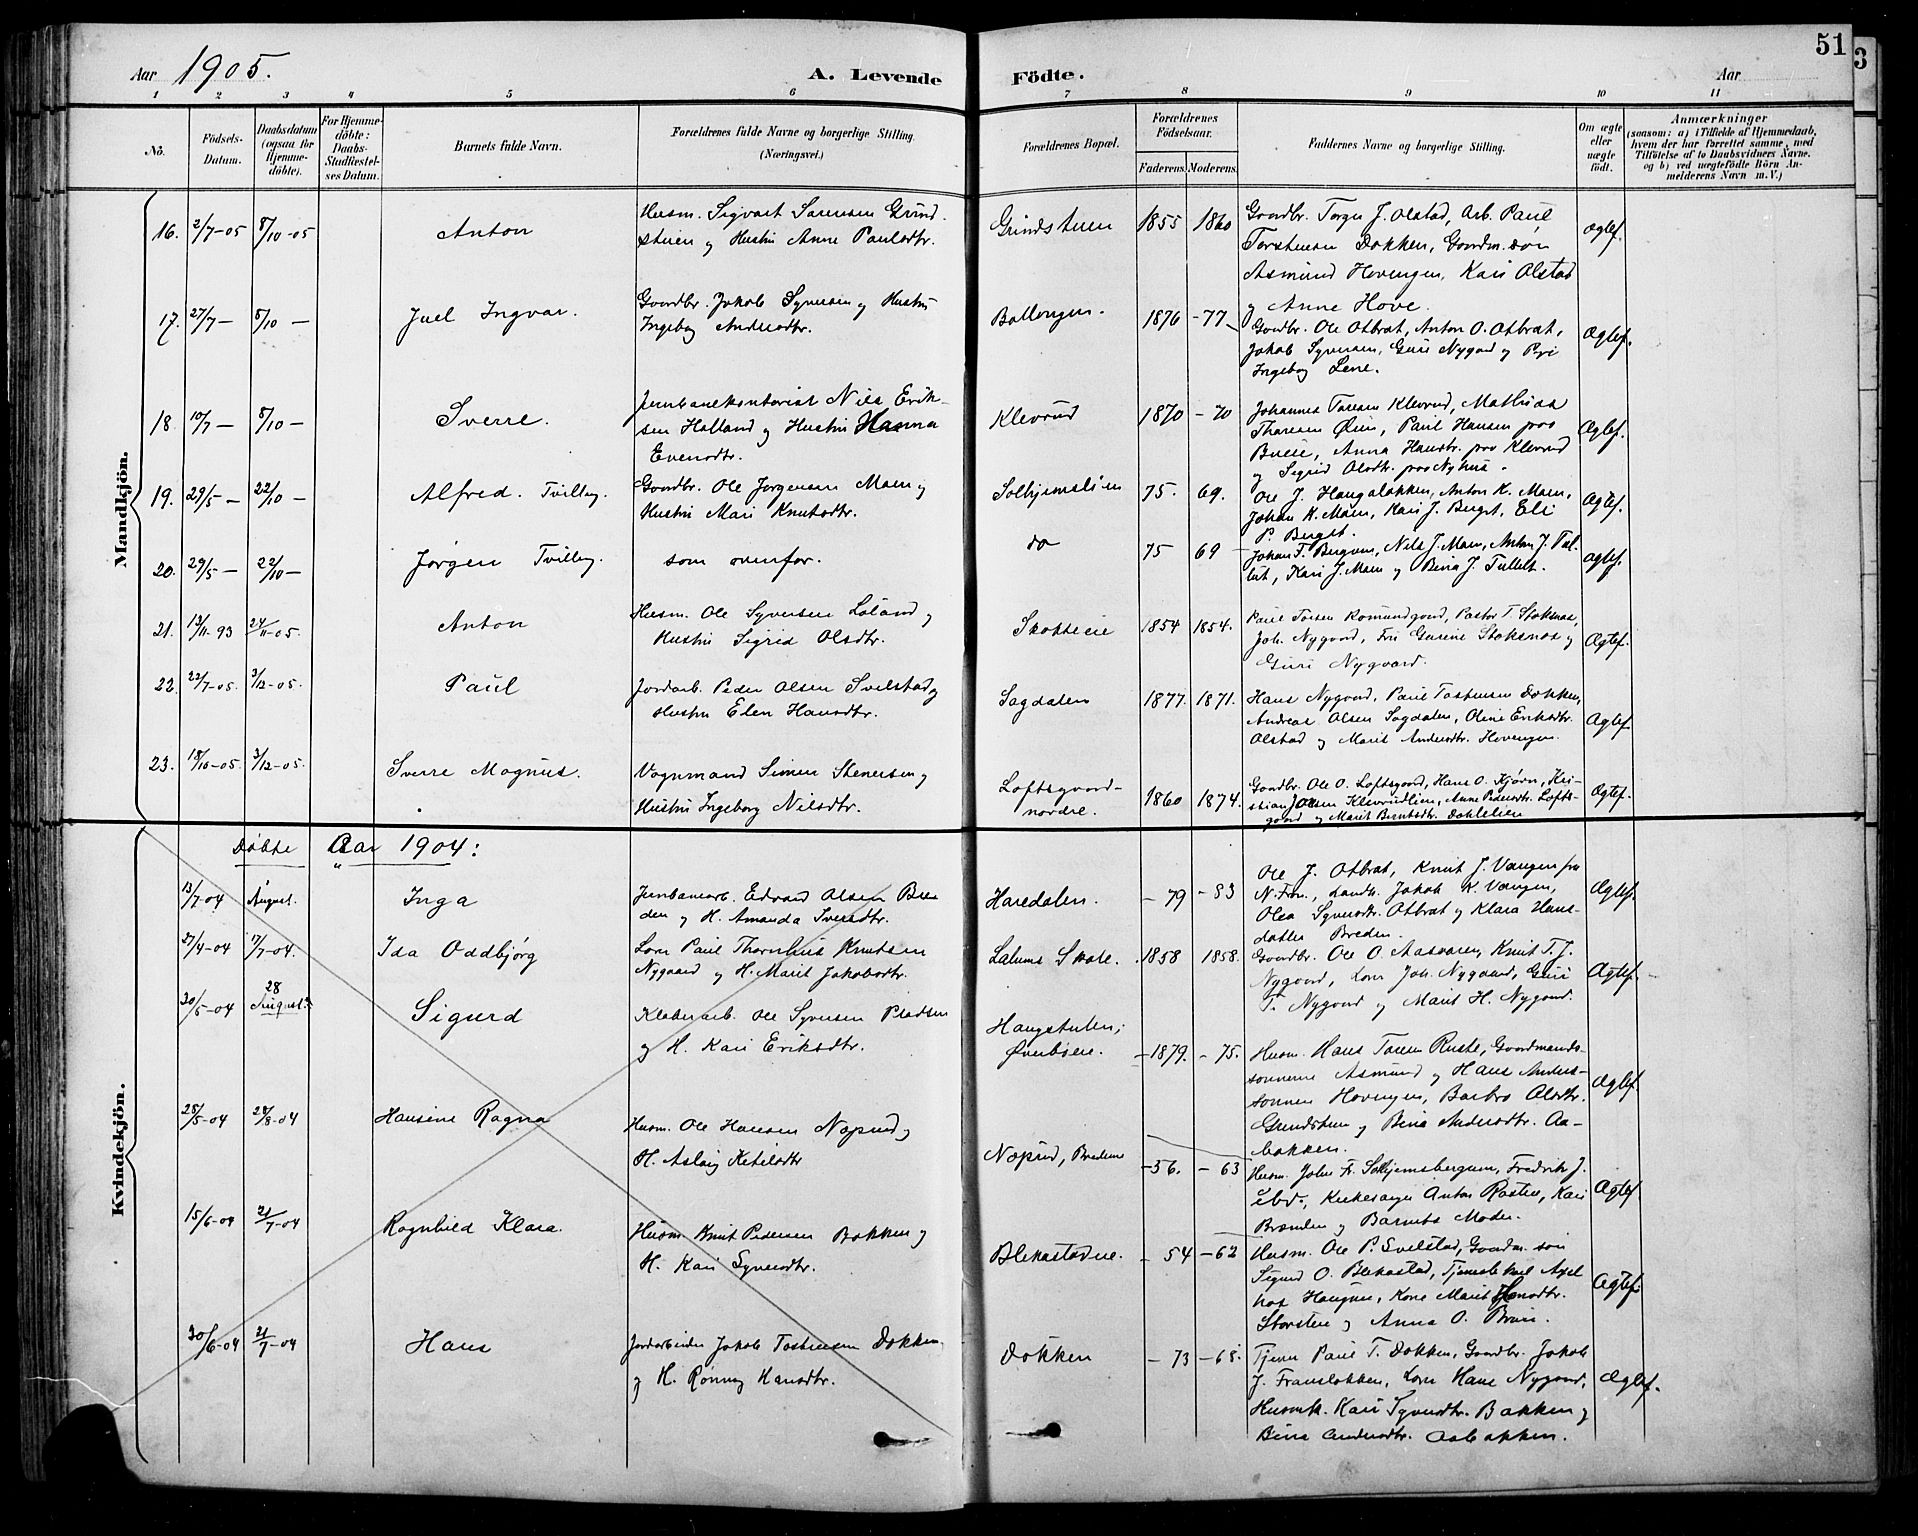 51
3
Aar 1905.
A. Levende
Födte.
Aar
1 2 3 4 5 6 7 8 9 10 11
No.
Födsels-
Datum.
Daabsdatum
(ogsaa for
Hjemme-
döbte).
For Hjemme-
döbte:
Daabs-
Stadfæstel-
ses Datum.
Barnets fulde Navn.
Forældrenes fulde Navne og borgerlige Stilling.
(Næringsvei.)
Forældrenes Bopæl.
Forældrenes
Födselsaar.
Faderens. Moderens.
Faddernes Navne og borgerlige Stilling.
Om ægte
eller
uægte
födt.
Anmærkninger
(saasom: a) i Tilfælde af Hjemmedaab,
hvem der har forrettet samme, med
Tilföielse af to Daabsvidners Navne.
og b) ved uægtefödte Börn An-
melderens Navn m. V.)
Mandkjön.
16. 2/7-05 8/10-05 Anton
Husm. Sigvart Sørensen Grind-
stuen og Hustru Anne Paulsdtr.
Grindstuen 1855 1860
Gaardbr. Torger J. Olstad, Arb. Paul
Torstensen Dokken, Gaardm.søn
Asmund Hovengen, Kari Olstad
og Anne Hove.
Ægtef.
17. 27/7 — 8/10 — Juel Ingvar.
Gaardbr. Jakob Syversen og Hustru
Ingeborg Andersdtr.
Ballengen. 1876 -77
Gaardbr. Ole Otbrat, Anton O. Otbrat,
Jakob Syversen, Guri Nygard og
Ingeborg Lene.
Ægtef.
18. 10/7 — 8/10 — Sverre.
Jernbanekontorist Nils Erik-
sen Halland og Hustru Hanna
Evensdtr.
Klevrud 1870 -70
Johannes Toresen Klevrud, Mathias
Thoresen Øien, Paul Hansen paa
Breie, Anna Hansdtr. paa Klevrud
og Sigrid Olsdtr. paa Nyhus.
Ægtef.
19. 29/5 — 22/10 — Alfred. Tvilling.
Gaardbr. Ole Jørgensen Moen og
Hustru Mari Knutsdtr.
Solhjemslien 75. 69.
Ole J. Haugaløkken, Anton K. Moen,
Johan K. Moen, Kari J. Bergst, Eli
P. Bergst.
Ægtef.
20. 29/5 — 22/10 — Jørgen Tvilling.
som ovenfor.
do 75 69
Johan F. Bergum, Nils J. Moen, Anton J. Tul-
lut, Kari J. Moen og Bina J. Tullut.
Ægtef.
21. 13/11-93 24/11-05. Anton
Husm. Ole Syversen Loland og
Hustru Sigrid Olsdtr.
Skotteeie 1854 1854.
Paul Torsen Romundgaard, Pastor T. Stoksnæs,
Joh. Nygaard, Fru Gurine Stoksnæs og
Guri Nygaard.
Ægtef.
22. 22/7-05. 3/12-05. Paul
Jordarb. Peder Olsen Svelstad og
Hustru Elen Hansdtr.
Sagdalen 1877. 1871.
Hans Nygaard, Paul Tostensen Dokken,
Andreas Olsen Sagdalen, Oline Eriksdtr.
Olstad og Marit Andersdtr. Hovengen.
Ægtef.
23. 18/10-05. 3/12-05. Sverre Magnus.
Vognmand Simen Stenersen og
Hustru Ingeborg Nilsdtr.
Loftsgaard-
nordre. 1860 1874.
Gaardbr. Ole O. Loftsgaard, Hans O. Kjørn, Kri-
stian Johnsen Klevrudlien, Anne Pedersdtr. Lofts-
gaard og Marit Berntsdtr. Doklelien
Ægtef.
Kvindekjön.
Döbte Aar 1904:
13/7-04 August. Inga
Jernbanearb. Edvard Olsen Bre-
den og H. Amanda Sversdtr.
Haredalen. -79 -83
Ole J. Otbrat, Knut J. Vangen fra
N. Fron, Landh. Jakob K. Vangen,
Olea Syversdtr. Otbrat og Klara Hans-
datter Breden.
Ægtef.
27/4-04 17/7-04. Ida Oddbjørg
Lærer Paul Thornhus Knutsen
Nygaard og H. Marit Jakobsdtr.
Lalums Skole. 1858 1858.
Gaardbr. Ole O. Aasvaren, Knut T. J.
Nygaard, Lærer Joh. Nygaard, Guri
T. Nygaard og Marit H. Nygaard.
Ægtef.
30/5-04 28 August. Sigurd
Kleberarb. Ole Syversen Pladsen
og H. Kari Eriksdtr.
Haugstulen,
Øverbøeie. -1879. -75.
Husm. Hans Toresen Ruste, Gaardmands-
sønnerne Asmund og Hans Anders-
sønnen Hovengen, Barbro Olsdtr.
Grindstuen og Bina Andersdtr. Aa-
bakken.
Ægtef.
28/5-04 28/8-04 Hansine Ragna
Husm. Ole Hansen Næprud og
H. Aslaug Ketilsdtr
Næprud, Bredene -56. -63
Husm. John Fr. Solhjemsbergum, Fredrik J.
ibd., Kirkesanger Anton Rosten, Kari
Brænden og Barnets Moder.
Ægtef
15/6-04 21/7-04 Ragnhild Klara.
Husm. Knut Pedersen Bakken og
H. Kari Syversdtr.
Blekastadeie. -54 -62
Husm. Ole P. Svelstad, Gaardm.søn
Sigurd O. Blekastad, Tjenestekarl Axel
Haugen, Kone Marit Hansdtr.
Storsten og Anna O. Bruri.
Ægtef.
30/6-04 21/7-04 Hans
Jordarbeider Jakob Tostensen Dokken,
og H. Rønnaug Hansdtr.
Dokken -73 -65.
Tjener Paul T. Dokken, Gaardbr. Jakob
J. Fransløkken, Lærer Hans Nygaard,
Husmk. Kari Syversdtr. Bakken og
Bina Andersdtr. Aabakken.
Ægtef.